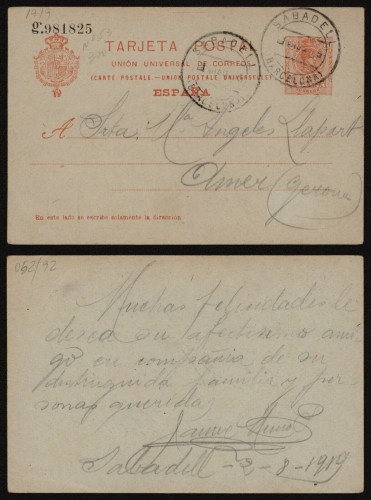 1919
g.981825
TARJETA POSTAL
UNIÓN UNIVERSAL DE CORREOS
(CARTE POSTALE.—UNION POSTALE UNIVERSELLE)
ESPAÑA
SABADELL
BARCELONA
SABADELL
BARCELONA
A Srta. Mª Angeles Llapart
Amer (Gerona)
En este lado se escribe solamente la dirección.
062/92
Muchas felicidades le
desea su afectisimo ami
go en compañia de su
distinguida familia y per
sonas queridas
Jaime
Sabadell - 2-8-1919